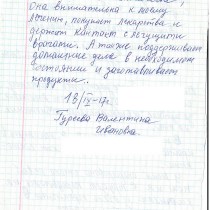 Она внимательна к моему
лечению, покупает лекарства и
держит контакт с ведущими
врачами. А также поддерживает
домашние дела в необходимом
состоянии и заготавливает
продукты.
18/IX-17г.
Гуреева Валентина
Ивановна